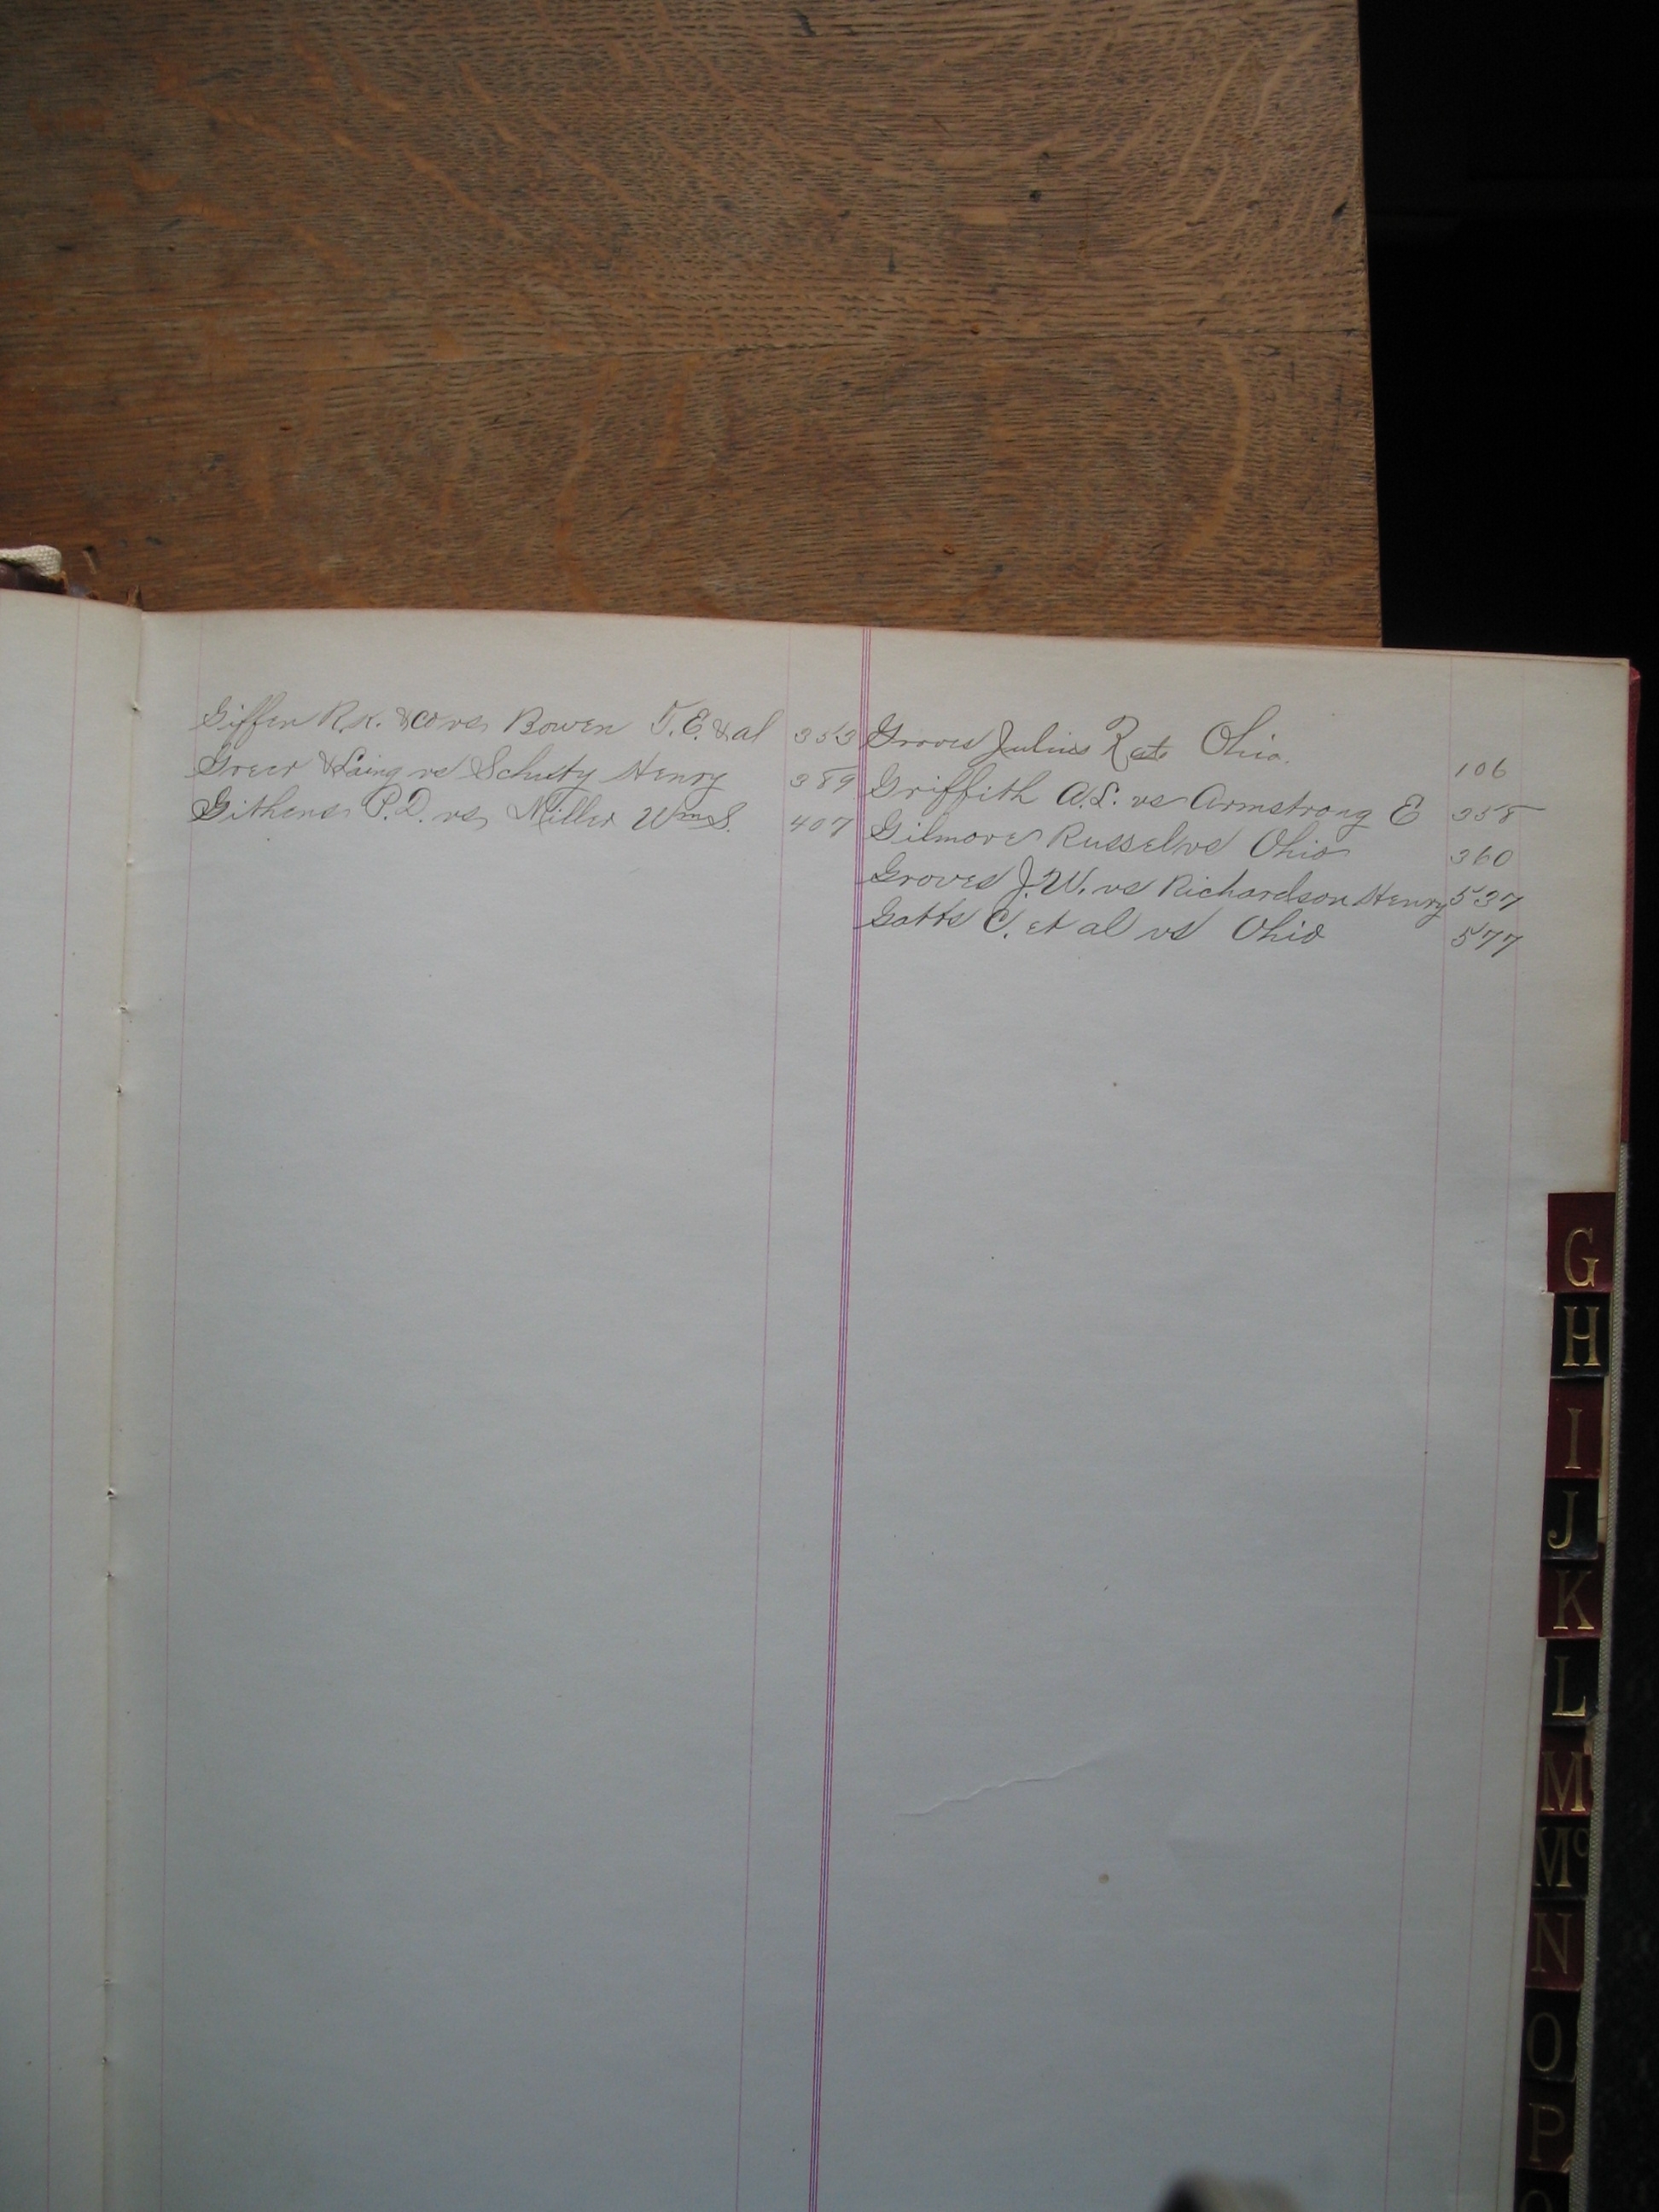 Giffen R.K. & Co vs Bowen T.E. & al 353
Greer & Laing vs Schulty Henry 389
Githens P.D. vs Miller Wm S. 407
Groves Julius Ohio. 106
Griffith A.L. vs Armstrong E 358
Gilmore Russel vs Ohio 360
Groves J.W. vs Richardson Henry 537
Gatts C. et al vs Ohio 577
G
H
I
J
K
L
M
Mc
N
O
P